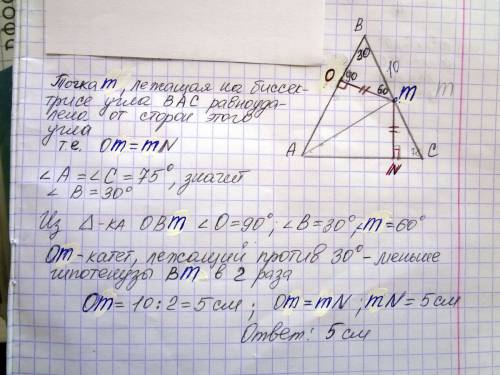 B
30
10
O
90
60
m
m
A
N
C
Точка m, лежащая на биссек-
трисе угла BAC равноуда-
лена от сторон этого
угла
т.е. Om = mN
∠A = ∠C = 75°, значит
∠B = 30°
Из Δ-ка OBm ∠O = 90°; ∠B = 30°, ∠m = 60°
Om - катет, лежащий против 30° - меньше
гипотенузы Bm в 2 раза
Om = 10 : 2 = 5 см ; Om = mN ; mN = 5 см
Ответ: 5 см